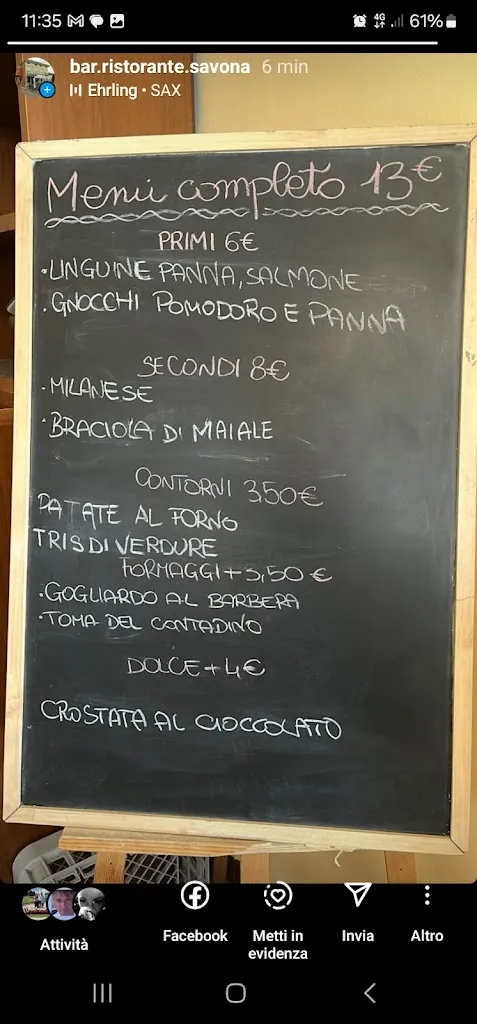 11:35
4G
61%
bar.ristorante.savona 6 min
Ehrling • SAX
Menú completo 13€
PRIMI 6€
·LINGUINE PANNA, SALMONE
·GNOCCHI POMODORO E PANNA
SECONDI 8€
·MILANESE
·BRACIOLA DI MAIALE
CONTORNI 3,50€
PATATE AL FORNO
TRIS DI VERDURE
FORMAGGI + 3,50 €
·GOGLIARDO AL BARBERA
·TOMA DEL CONTADINO
DOLCE + 4€
CROSTATA AL CIOCCOLATO
Attività
Facebook
Metti in
evidenza
Invia
Altro